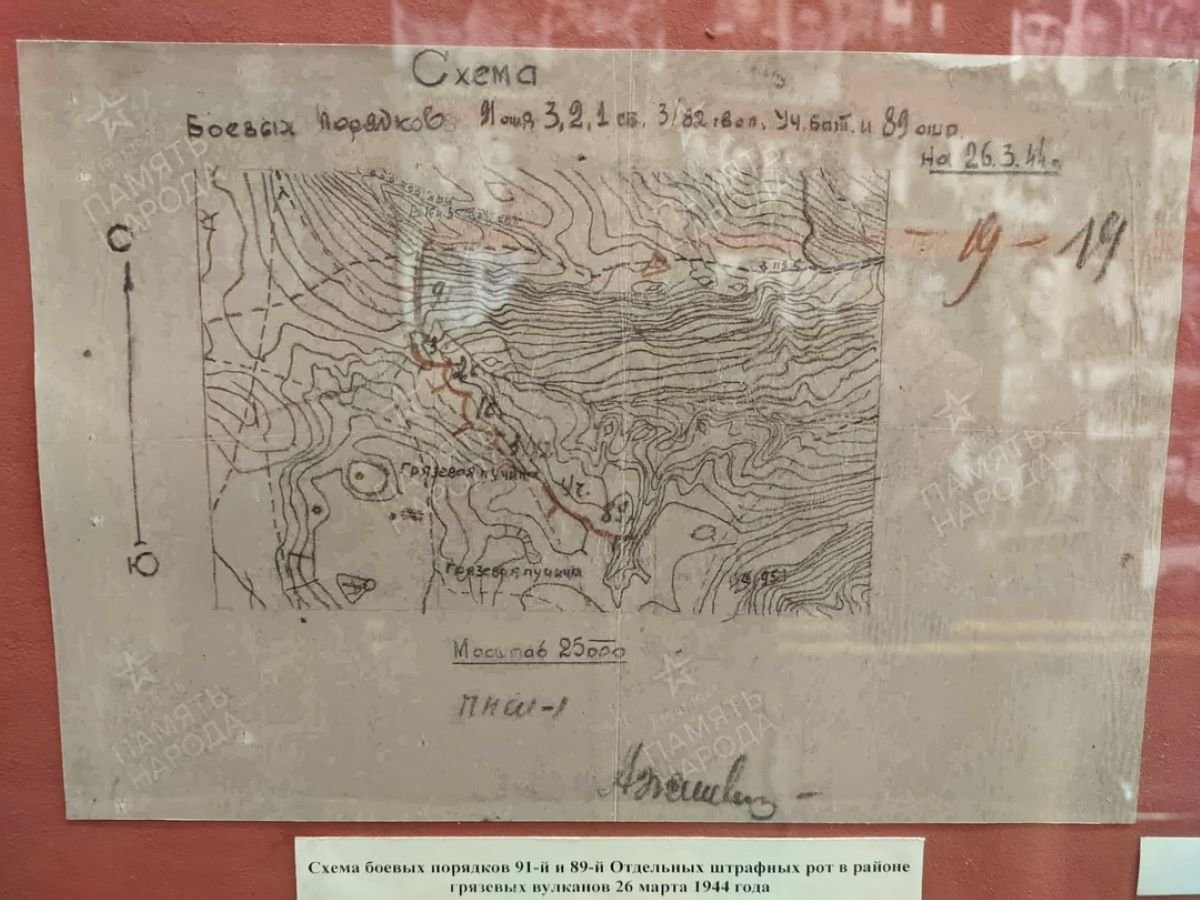 Схема
Боевых порядков 91 ошр 3, 2, 1 ст. 3/82 Уч. бат. и 89 ошр
на 26.3.44г.
- 19 - 19
С
91
2
Грязевая пучина
Уч.
89
Грязевая пучина
Ю
Масштаб 25000
ПНШ-1
Схема боевых порядков 91-й и 89-й Отдельных штрафных рот в районе
грязевых вулканов 26 марта 1944 года
ПАМЯТЬ
НАРОДА
ПАМЯТЬ
НАРОДА
ПАМЯТЬ
НАРОДА
ПАМЯТЬ
НАРОДА